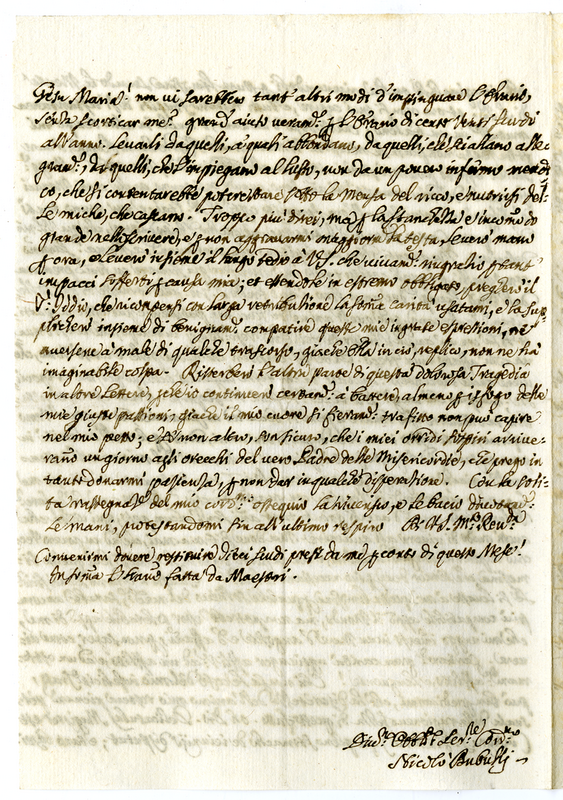 Giesu Maria! non vi sarebbero tant'altri modi d'impinguare l'Erario,
senza scorticar me? grand'aiuto veram.te p l'Erario di cento venti scudi
all'anno. Levarli da quelli, a' quali abbondano, da quelli, che stanno alle
gran., da quelli, che l'impiegano al lusso, non da un povero infermo mendi
co, che si contentarebbe poter stare sotto la Mensa del ricco, e nutrirsi del-
le miche, che cascano. Troppo più direi, ma p la stanchezza e incomodo
grande nello scrivere, e p non aggravarmi maggiorm.te la testa, levarò mano
p ora, e levarò insieme il lungo tedio a V.S. che vivam.te ringrazio p tant'
impacci sofferti p causa mia; et essendole in estremo obbligato, pregherò il
Iddio, che ricompensi con larga retributione la somma carità usatami, e la sup
plicherò insieme di benignam.te compatire queste mie ingrate espressioni, nè
aversene a male di qualche trascorso, giache Ella in ciò, replico, non ne ha
imaginabile colpa. Riserberò l'altra parte di questa dolorosa Tragedia
in altre Lettere, se io continuerò a battere, almeno p isfogo delle
mie giuste passioni, giache il mio cuore sì fieram.te trafitto non può capire
nel mio petto, e se non altro, son sicuro, che i miei orridi sospiri arrive-
ranno un giorno agli orecchi del vero Padre delle Misericordie, che prego in
tanto donarmi pazienza, p non dar in qualche disperatione. Con la soli-
ta rassegna del mio ossequio la riverisco, e le bacio
le mani, protestandomi fin all'ultimo respiro Di V.S. M.to Rev.da
Convenirmi dovere restituire dieci scudi presi da me p conto di questo Mese!
In somma l'hanno fatta da Maestri.
Div.mo Obbl.mo Ser.re
Nicolò